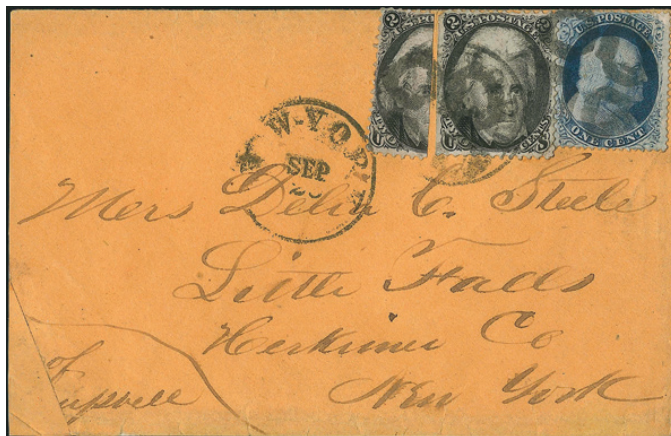 U.S. POSTAGE
2 2
U.S. POSTAGE
2 CENTS
U.S. POSTAGE
ONE CENT
W-YORK
SEP
Mers Delia C. Steele
Little Falls
Herkimer Co
New York
of